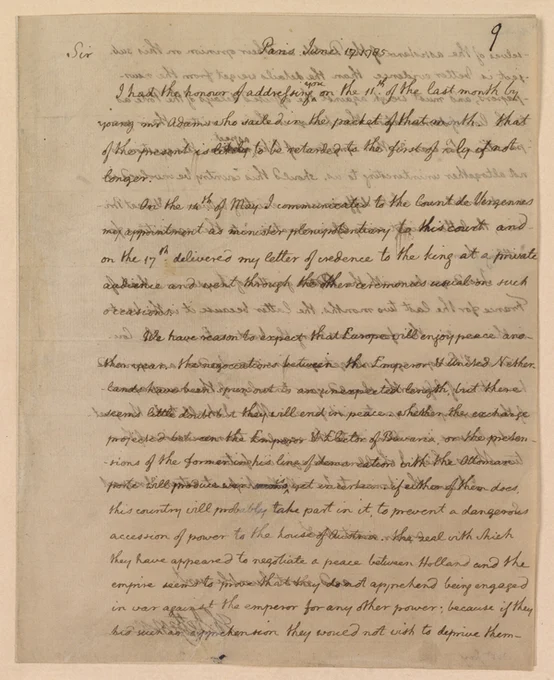 9
Sir Paris June 17. 1785
I had the honour of addressing you on the 11th of the last month by
young mr Adams who sailed in the packet of that month. That
of the present is likely to be retarded to the first of July if not
longer.
On the 14th of May I communicated to the Count de Vergennes
my appointment as minister plenipotentiary to this court and
on the 17th delivered my letter of credence to the king at a private
audience and went through the other ceremonies usual on such
occasions.
We have reason to expect that Europe will enjoy peace ano-
ther year. the negociations between the Emperor & United Nether-
lands have been spun out to an unexpected length, but there
seems little doubt but they will end in peace. whether the exchange
projected between the Emperor & Elector of Bavaria, or the preten-
sions of the former in his line of demarcation with the Ottoman
porte will produce war is yet incertain. if either of them does,
this country will probably take part in it, to prevent a dangerous
accession of power to the house of Austria. the zeal with which
they have appeared to negotiate a peace between Holland and the
empire seems to prove that they do not apprehend being engaged
in war against the emperor for any other power; because if they
had such an apprehension they would not wish to deprive them-